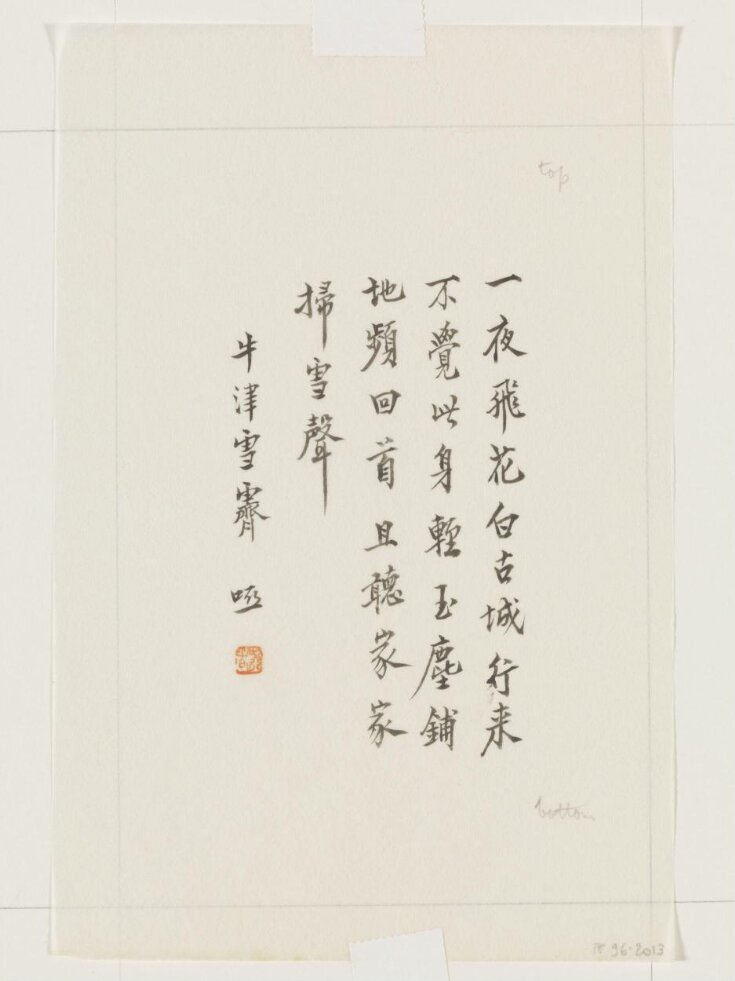 top
一夜飛花白古城行来
不覺此身輕玉塵鋪
地頻回首且聽家家
掃雪聲
牛津雪霽 啞
bottom
96-2013